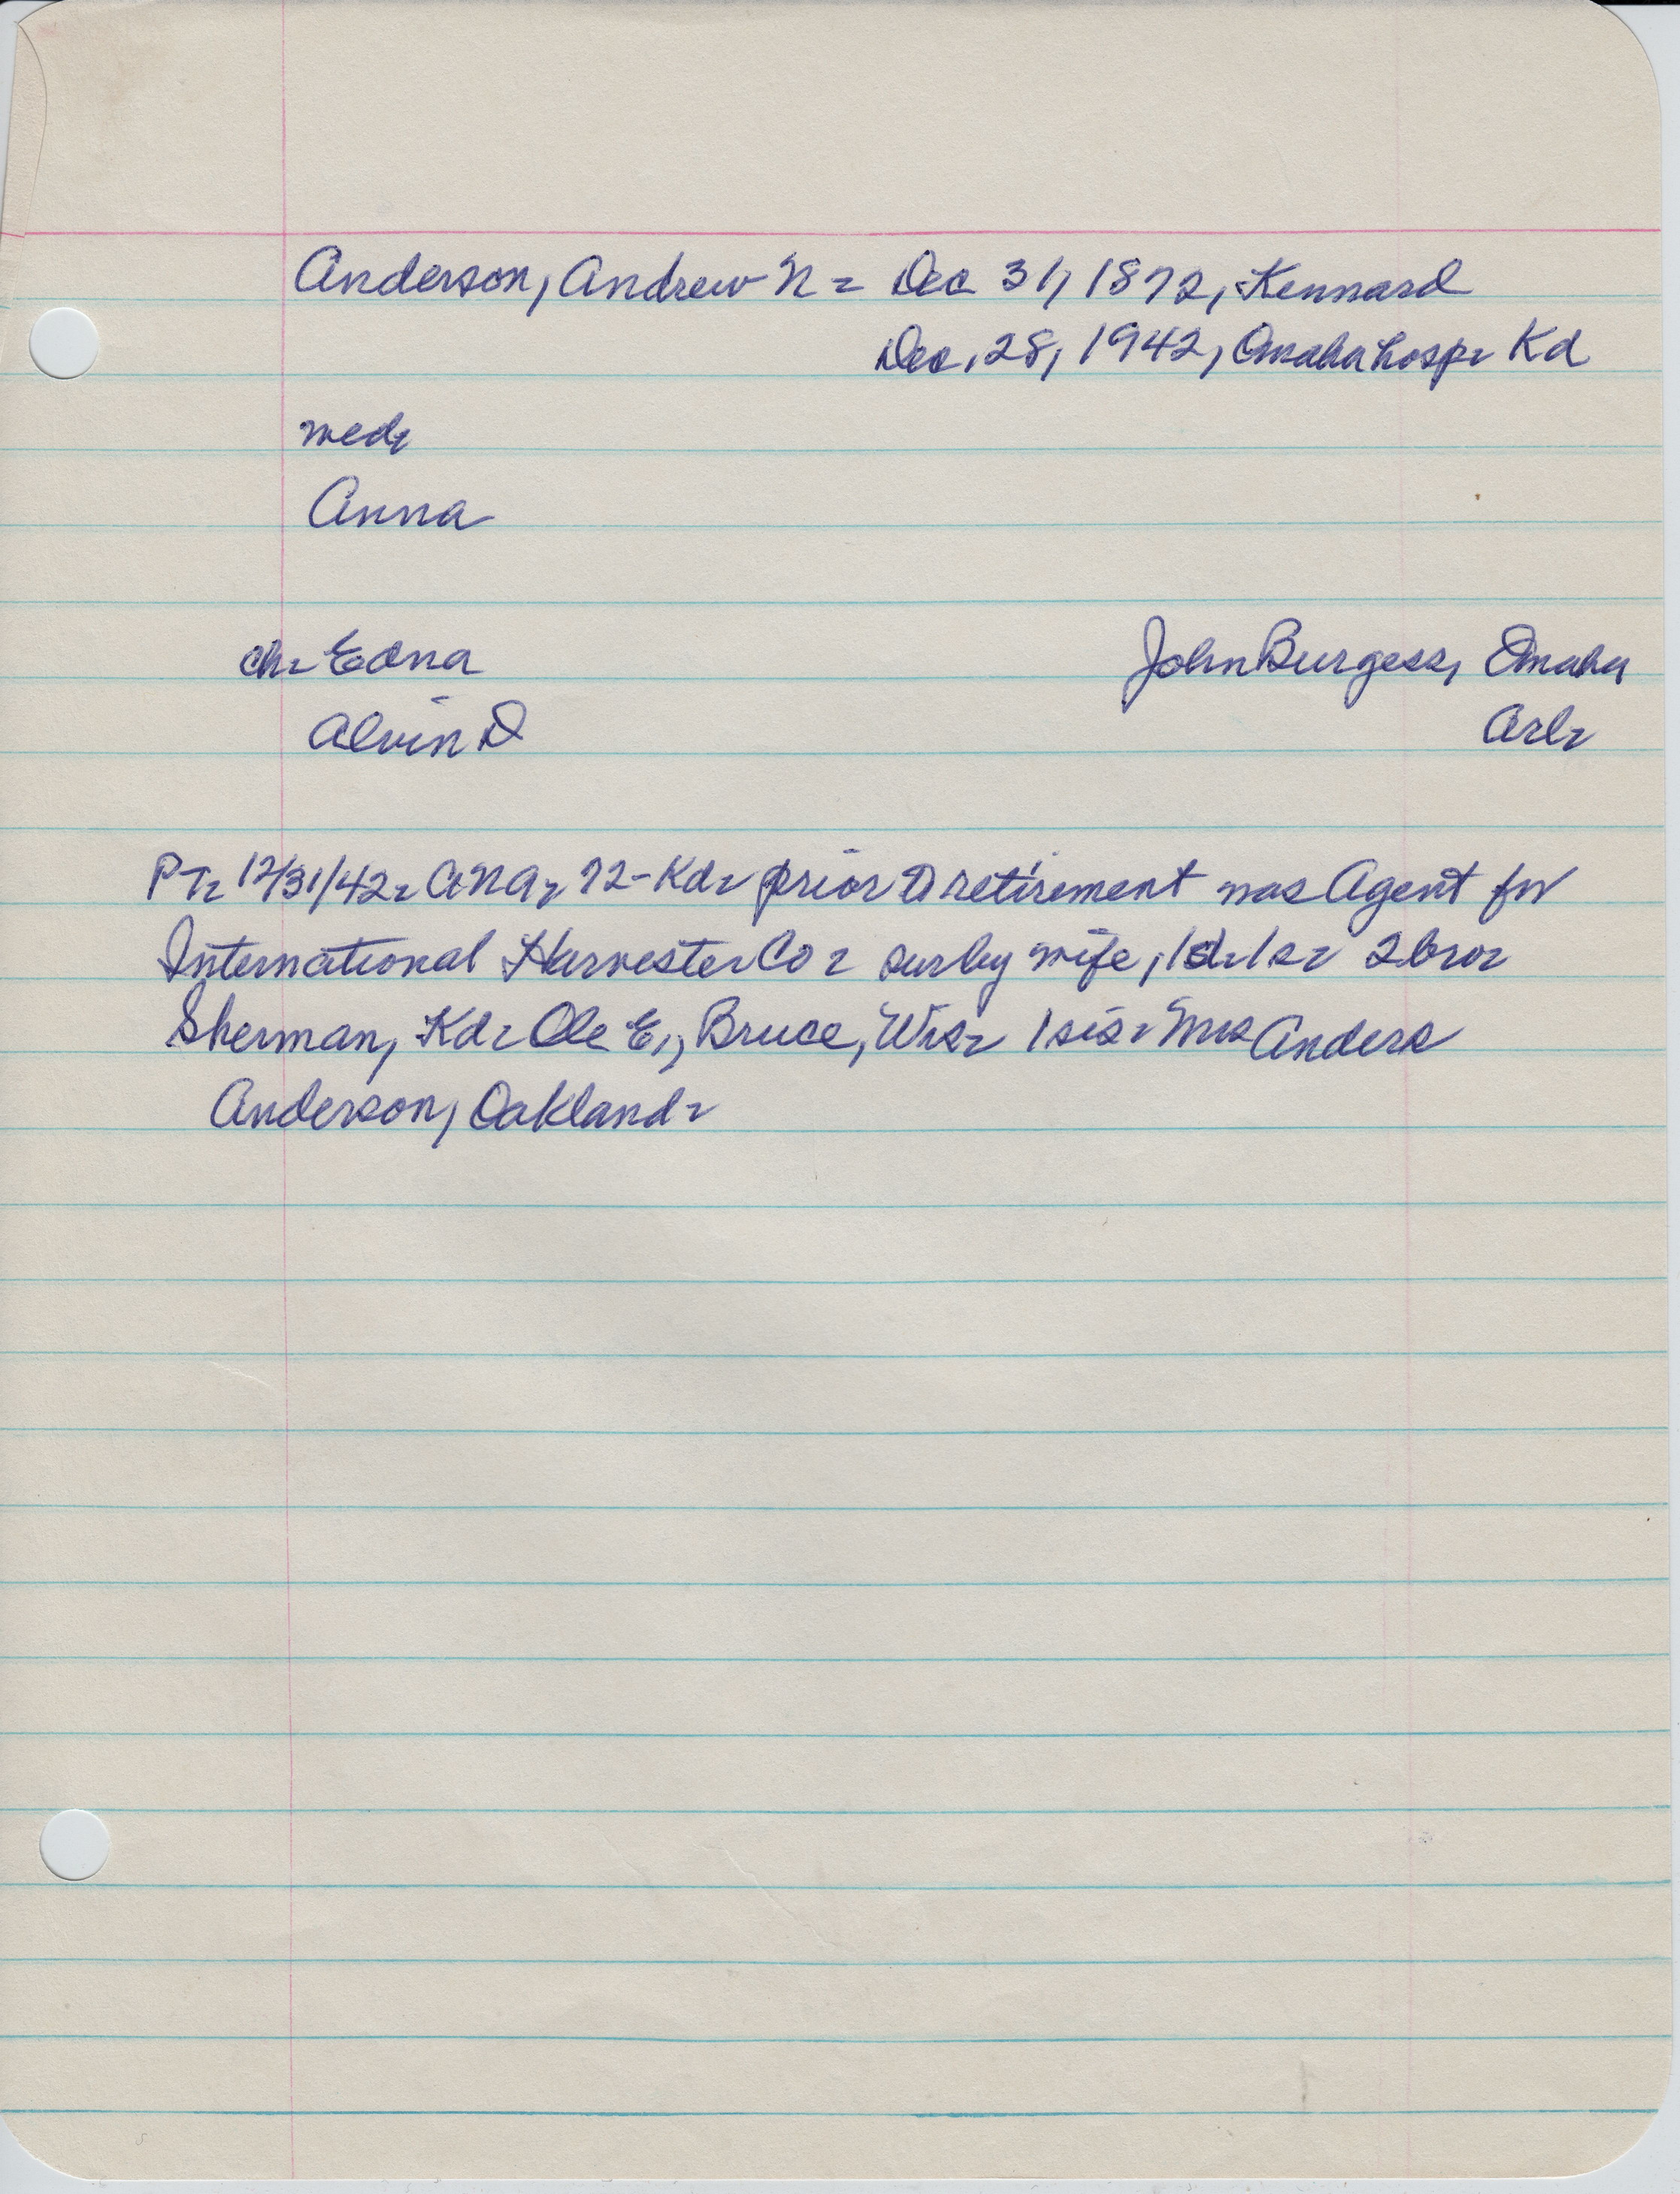 Anderson, Andrew N - Dec 31, 1872, Kennard
Dec, 28, 1942, Omaha hosp - Kd
wed -
Anna
ch - Edna John Burgess, Omaha
Alvin D Arl -
PT - 12/31/42 - ANA, 72 - Kd - prior to retirement was Agent for
International Harvester Co - sur by wife, 1d - 1s - 2 bro -
Sherman, Kd - Ole E., Bruce, Wis - 1 sis - Mrs Anders
Anderson, Oakland -